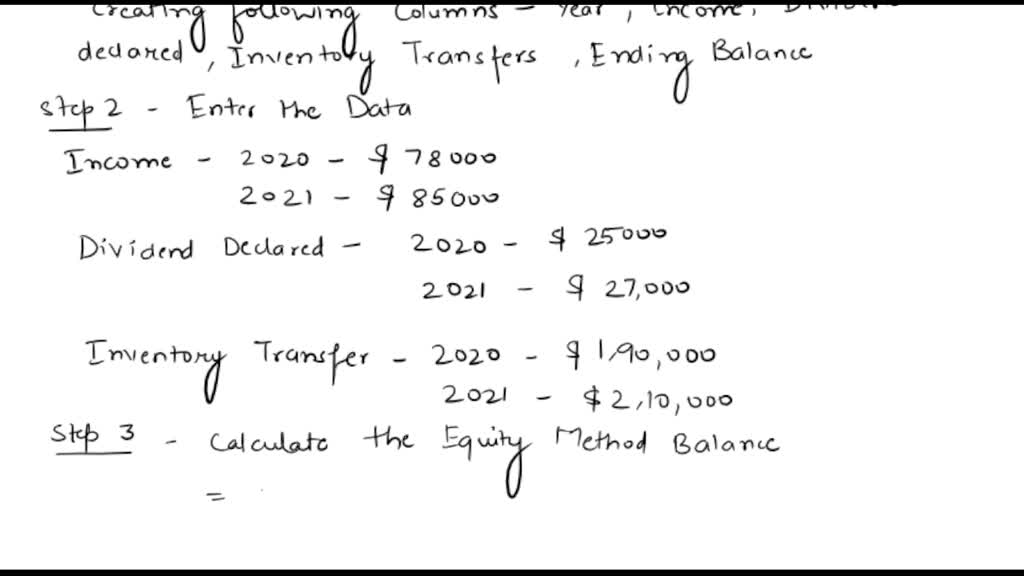 Creating following Columns - Year, Income,
declared, Inventory Transfers, Ending Balance
Step 2 - Enter the Data
Income - 2020 - $ 78000
2021 - $ 85000
Dividend Declared - 2020 - $ 25000
2021 - $ 27,000
Inventory Transfer - 2020 - $ 1,90,000
2021 - $ 2,10,000
Step 3 - Calculate the Equity Method Balance
=